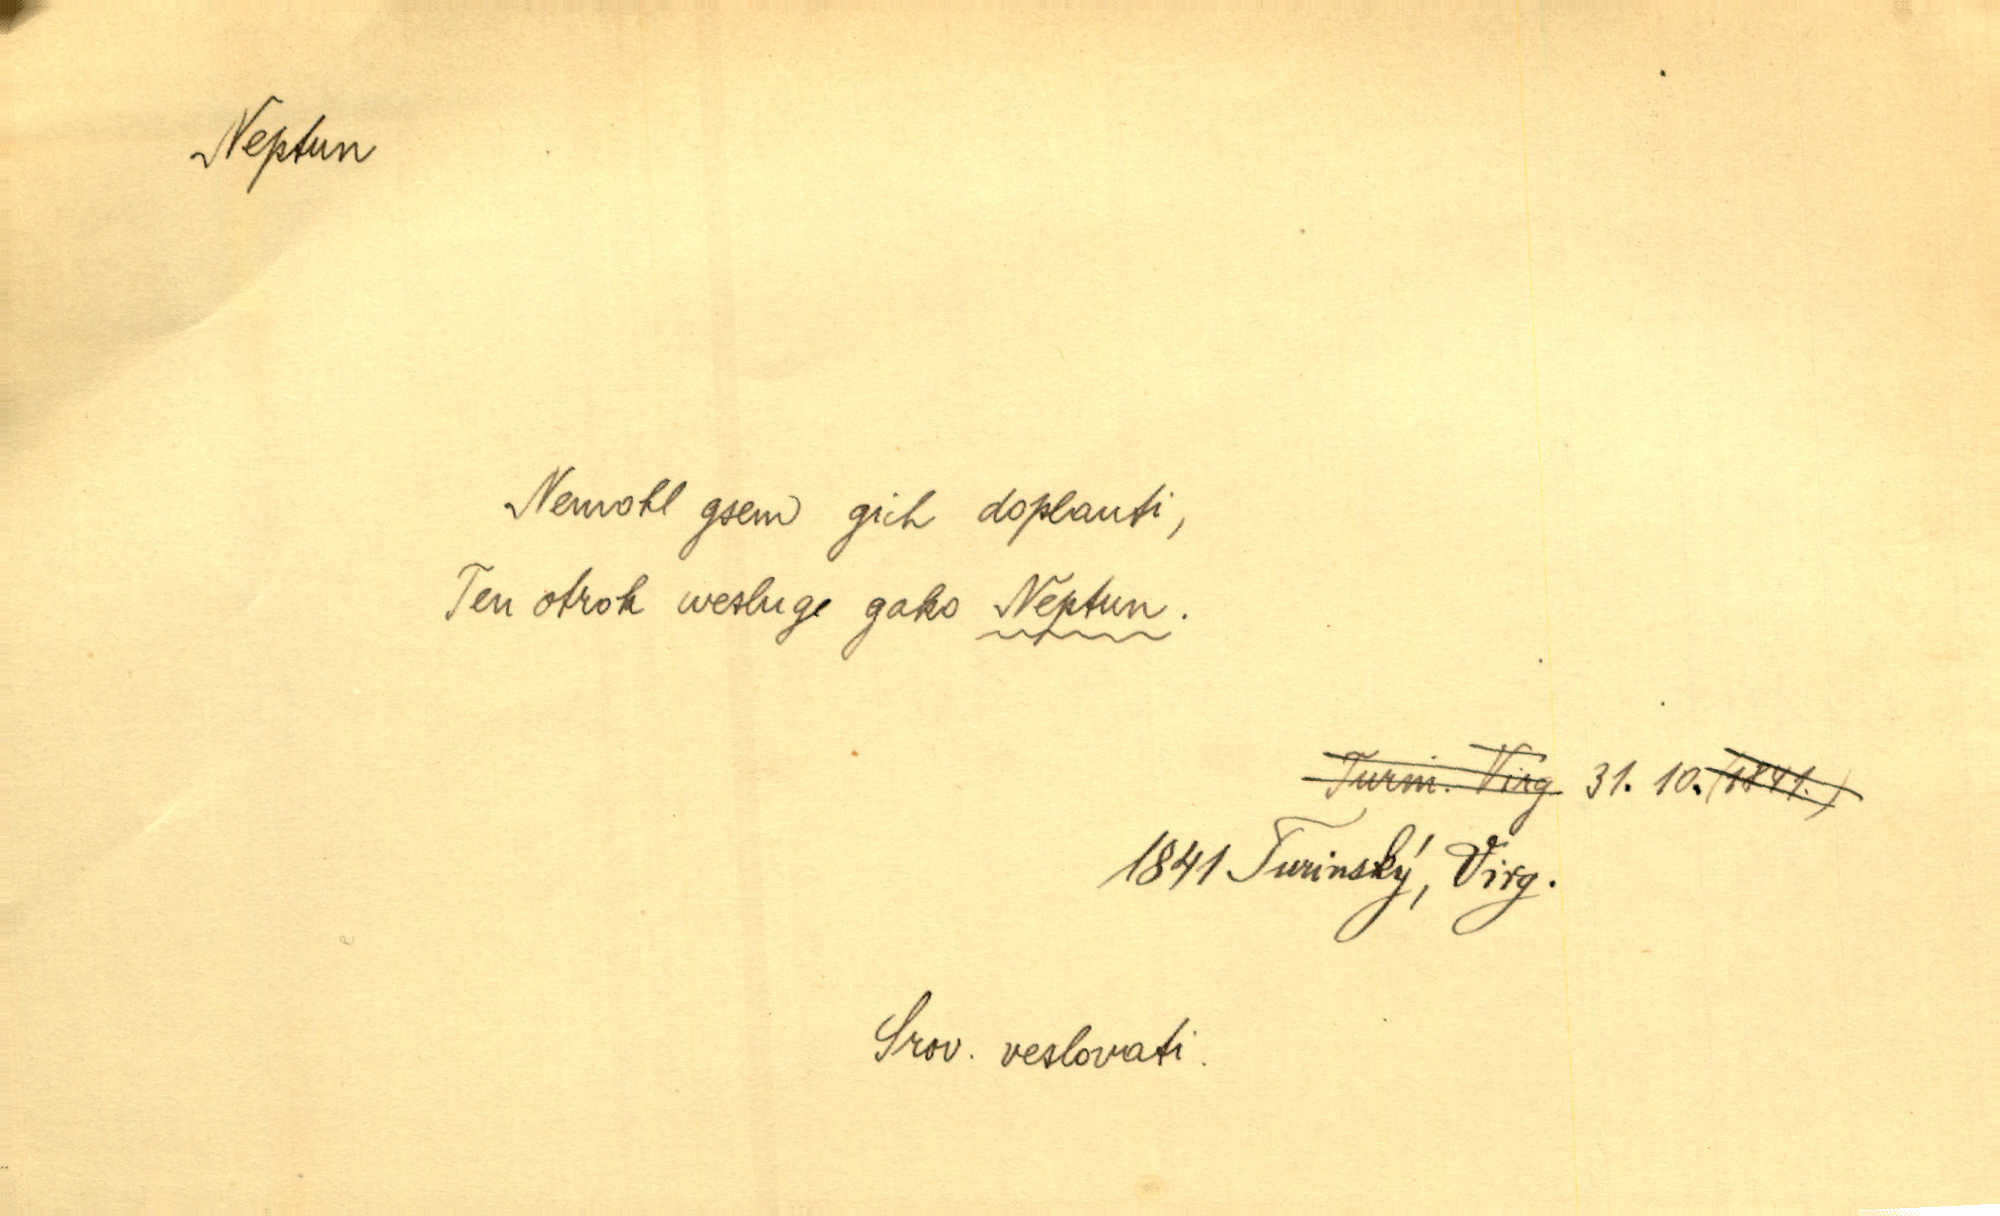 Neptun
Nemohl gsem gich doplauti,
Ten otrok wesluge gako Neptun.
Turin. Virg 31. 10. (1841.)
1841 Turinský, Virg.
Srov. veslovati.